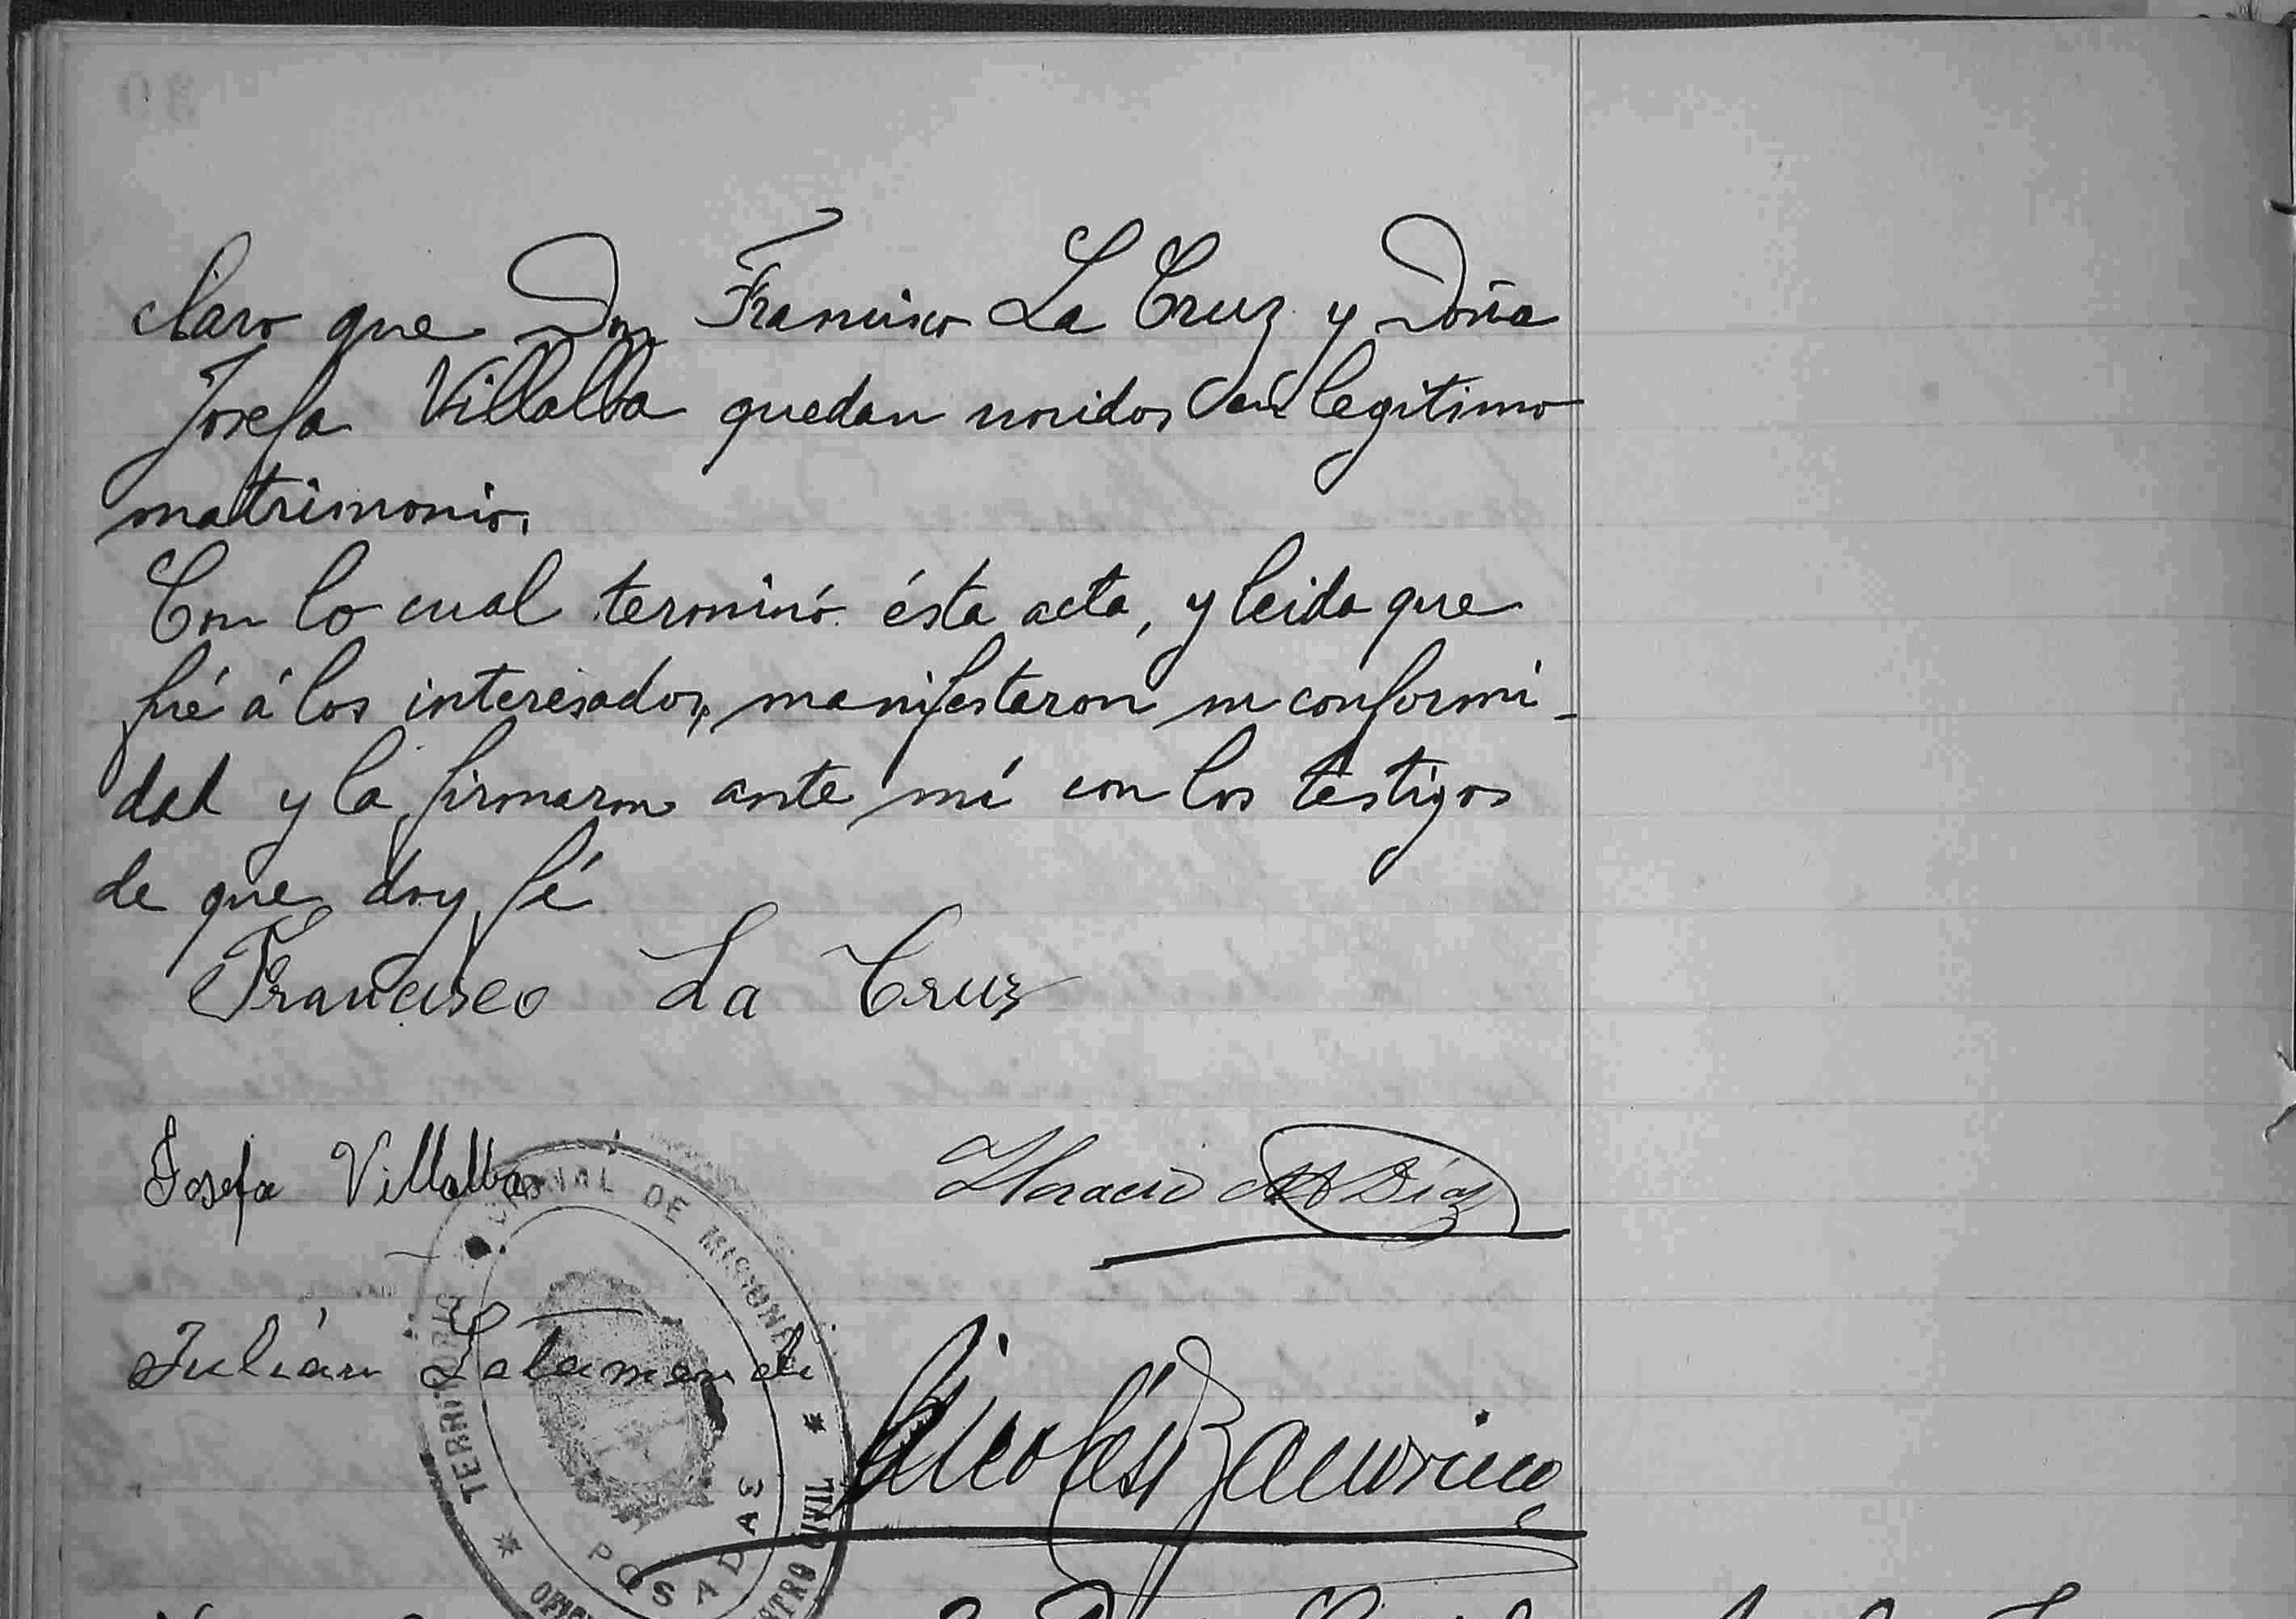 claro que Don Francisco La Cruz y Doña
Josefa Villalba quedan unidos en legítimo
matrimonio.
Con lo cual terminó ésta acta, y leida que
fué á los interesados, manifestaron su conformi-
dad y la firmaron ante mí con los testigos
de que doy fé
Francisco La Cruz
Josefa Villalba
Horacio Díaz
Julián
Nicolás
TERRITORIO NACIONAL DE MISIONES
REGISTRO CIVIL
POSADAS